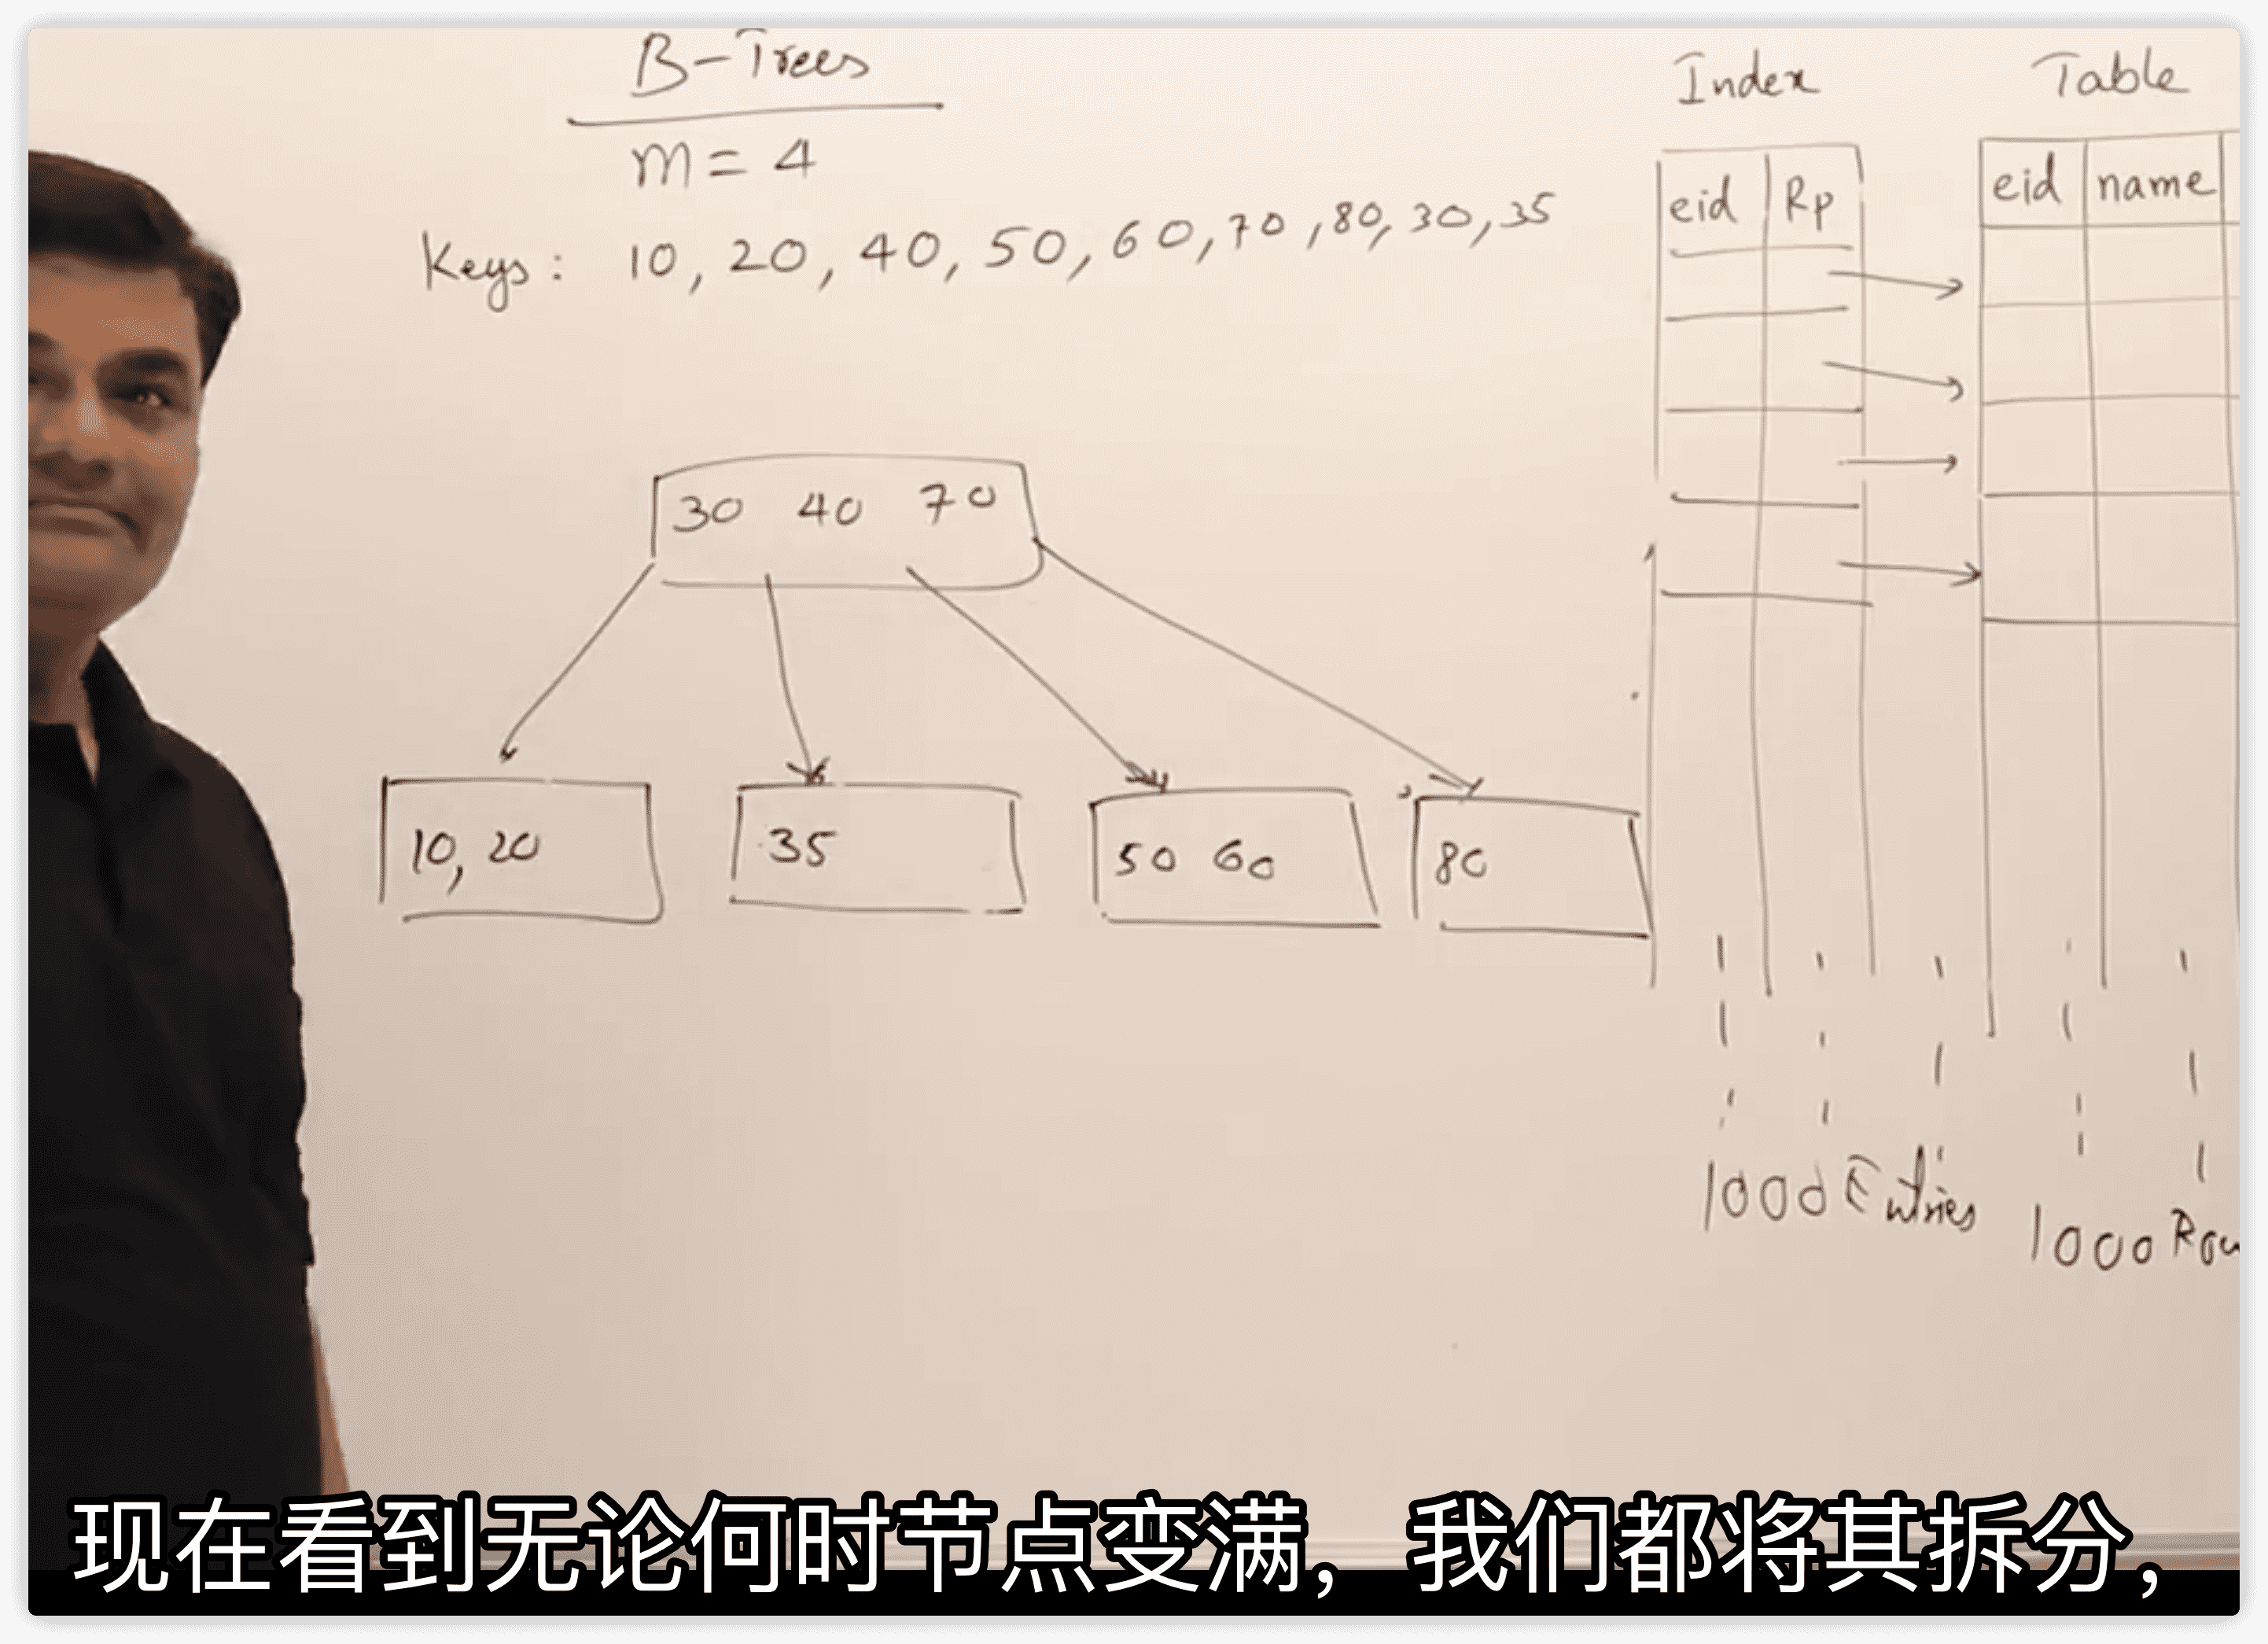 B-Trees
m = 4
Keys: 10, 20, 40, 50, 60, 70, 80, 30, 35
30 40 70
10, 20
35
50 60
80
Index
eid Rp
1000 Entries
Table
eid name
1000
现在看到无论何时节点变满，我们都将其拆分，